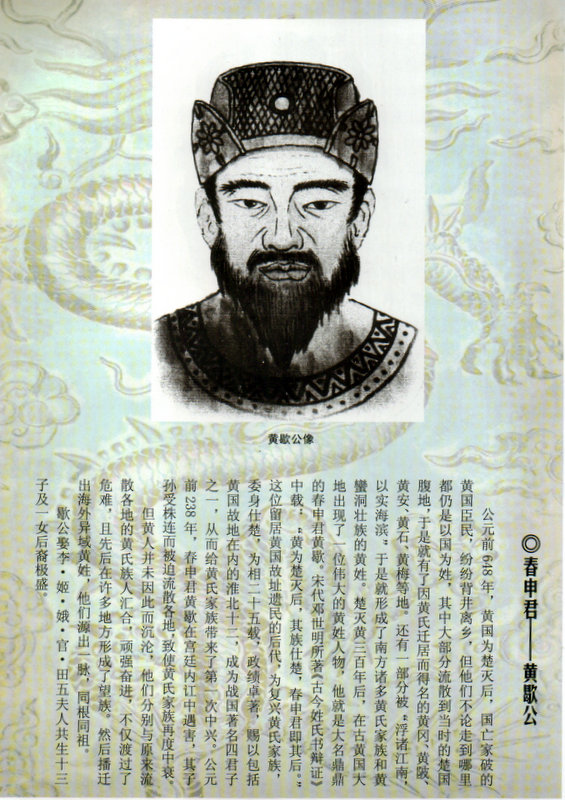 黄歇公像
◎春申君——黄歇公
公元前648年，黄国为楚灭后，国亡家破的
黄国臣民，纷纷背井离乡，但他们不论走到哪里
都仍是以国为姓，其中大部分流散到当时的楚国
腹地，于是就有了因黄氏迁居而得名的黄冈、黄陂、
黄安、黄石、黄梅等地。还有一部分被“浮诸江南，
以实海滨”于是就形成了南方诸多黄氏家族和黄
蠻洞壮族的黄姓。楚灭黄三百年后，在古黄国大
地出现了一位伟大的黄姓人物，他就是大名鼎鼎
的春申君黄歇，宋代邓世明所著《古今姓氏书辩证》
中载：“黄为楚灭后，其族仕楚，春申君即其后。”
这位留居黄国故址遗民的后代，为复兴黄氏家族，
委身仕楚，为相二十五载，政绩卓著，赐以包括
黄国故地在内的淮北十二，成为战国著名四君子
之一，从而给黄氏家族带来了第一次中兴。公元
前238年，春申君黄歇在宫廷内讧中遇害，其子
孙受株连而被迫流散各地，致使黄氏家族再度中衰。
但黄人并未因此而沉沦，他们分别与原来流
散各地的黄氏族人汇合，顽强奋进，不仅渡过了
危难，且先后在许多地方形成了望族。然后播迁
出海外异域黄姓，他们源出一脉，同根同祖。
歇公娶李·姬·娥·官·田五夫人共生十三
子及一女后裔极盛。